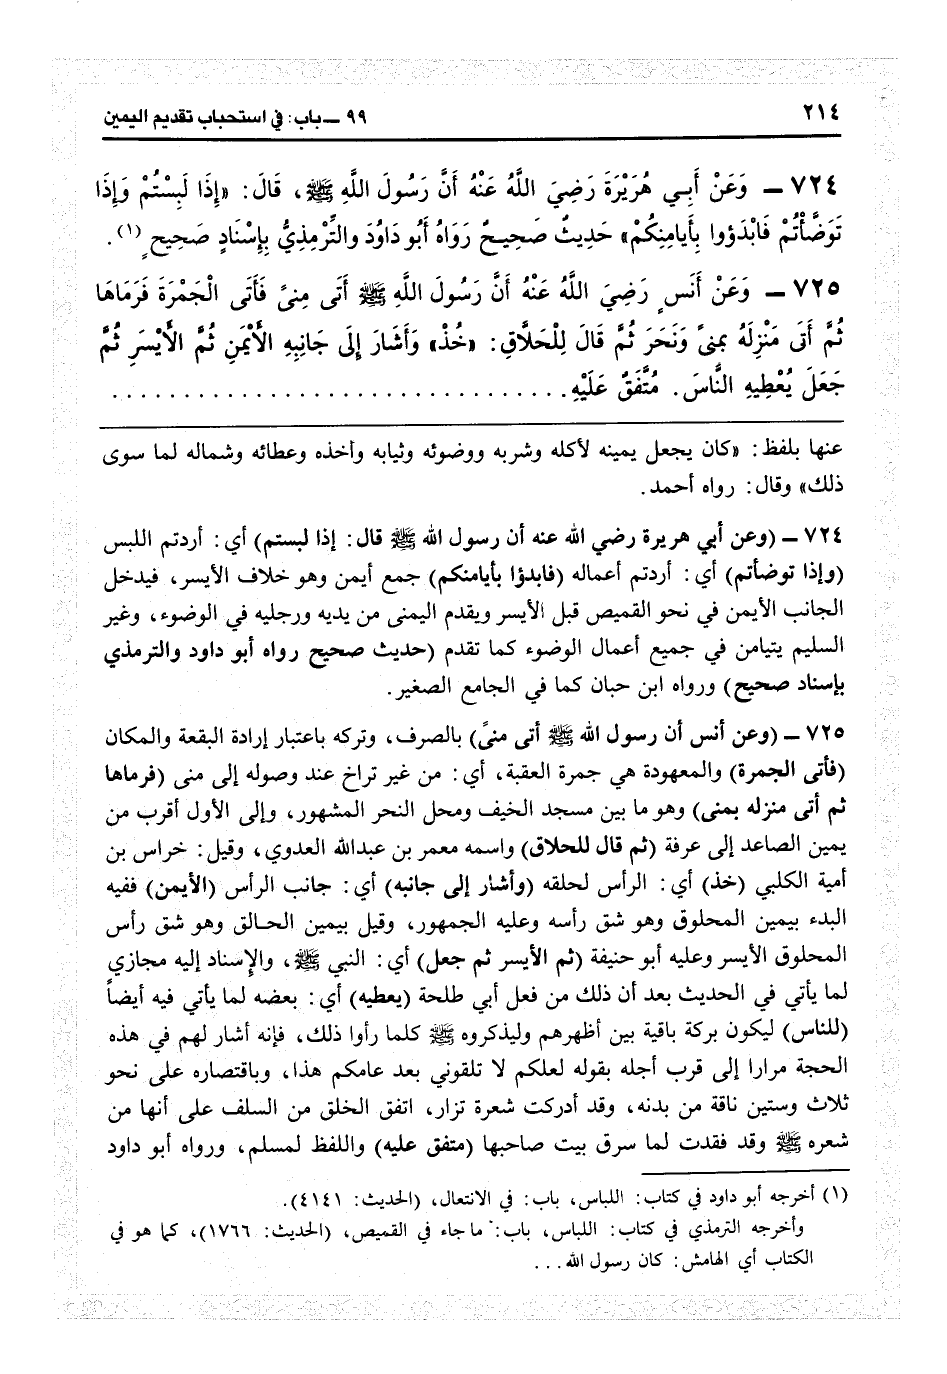 ٢١٤
٩٩ ــ باب: في استحباب تقديم اليمين
٧٢٤ ــ وَعَنْ أَبِي هُرَيْرَةَ رَضِيَ اللَّهُ عَنْهُ أَنَّ رَسُولَ اللَّهِ ﷺ، قَالَ: «إِذَا لَبِسْتُمْ وَإِذَا
تَوَضَّأْتُمْ فَابْدَؤوا بِأَيامِنِكُمْ» حَدِيثٌ صَحِيحٌ رَوَاهُ أَبُو دَاوُدَ والتِّرْمِذِيُّ بِإِسْنَادٍ صَحِيحٍ (١).
٧٢٥ ــ وَعَنْ أَنَسٍ رَضِيَ اللَّهُ عَنْهُ أَنَّ رَسُولَ اللَّهِ ﷺ أَتَى مِنىً فَأَتَى الْجَمْرَةَ فَرَمَاهَا
ثُمَّ أَتَى مَنْزِلَهُ بِمنىً وَنَحَرَ ثُمَّ قَالَ لِلْحَلَّاقِ: «خُذْ» وَأَشَارَ إِلَى جَانِبِهِ الأَيْمَنِ ثُمَّ الأَيْسَرِ ثُمَّ
جَعَلَ يُعْطِيهِ النَّاسَ. مُتَّفَقٌ عَلَيْهِ. . . . . . . . . . . . . . . . . . . . . . . . . . . . . . . .
عنها بلفظ: «كان يجعل يمينه لأكله وشربه ووضوئه وثيابه وأخذه وعطائه وشماله لما سوى
ذلك» وقال: رواه أحمد.
٧٢٤ ــ (وعن أبي هريرة رضي الله عنه أن رسول الله ﷺ قال: إذا لبستم) أي: أردتم اللبس
(وإذا توضأتم) أي: أردتم أعماله (فابدؤا بأيامنكم) جمع أيمن وهو خلاف الأيسر، فيدخل
الجانب الأيمن في نحو القميص قبل الأيسر ويقدم اليمنى من يديه ورجليه في الوضوء، وغير
السليم يتيامن في جميع أعمال الوضوء كما تقدم (حديث صحيح رواه أبو داود والترمذي
بإسناد صحيح) ورواه ابن حبان كما في الجامع الصغير.
٧٢٥ ــ (وعن أنس أن رسول الله ﷺ أتى منىً) بالصرف، وتركه باعتبار إرادة البقعة والمكان
(فأتى الجمرة) والمعهودة هي جمرة العقبة، أي: من غير تراخ عند وصوله إلى منى (فرماها
ثم أتى منزله بمنى) وهو ما بين مسجد الخيف ومحل النحر المشهور، وإلى الأول أقرب من
يمين الصاعد إلى عرفة (ثم قال للحلاق) واسمه معمر بن عبدالله العدوي، وقيل: خراس بن
أمية الكلبي (خذ) أي: الرأس لحلقه (وأشار إلى جانبه) أي: جانب الرأس (الأيمن) ففيه
البدء بيمين المحلوق وهو شق رأسه وعليه الجمهور، وقيل بيمين الحالق وهو شق رأس
المحلوق الأيسر وعليه أبو حنيفة (ثم الأيسر ثم جعل) أي: النبي ﷺ، والإسناد إليه مجازي
لما يأتي في الحديث بعد أن ذلك من فعل أبي طلحة (يعطيه) أي: بعضه لما يأتي فيه أيضاً
(للناس) ليكون بركة باقية بين أظهرهم وليذكروه ﷺ كلما رأوا ذلك، فإنه أشار لهم في هذه
الحجة مرارا إلى قرب أجله بقوله لعلكم لا تلقوني بعد عامكم هذا، وباقتصاره على نحو
ثلاث وستين ناقة من بدنه، وقد أدركت شعرة تزار، اتفق الخلق من السلف على أنها من
شعره ﷺ وقد فقدت لما سرق بيت صاحبها (متفق عليه) واللفظ لمسلم، ورواه أبو داود
(١) أخرجه أبو داود في كتاب: اللباس، باب: في الانتعال، (الحديث: ٤١٤١).
وأخرجه الترمذي في كتاب: اللباس، باب: ما جاء في القميص، (الحديث: ١٧٦٦)، كما هو في
الكتاب أي الهامش: كان رسول الله . . .